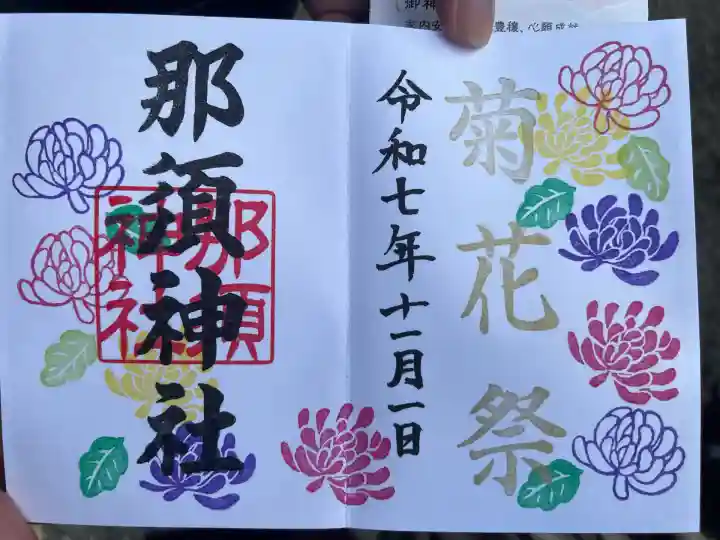 菊花祭
令和七年十一月一日
那須神社
那須
神社
御神
豊穣、心願成就